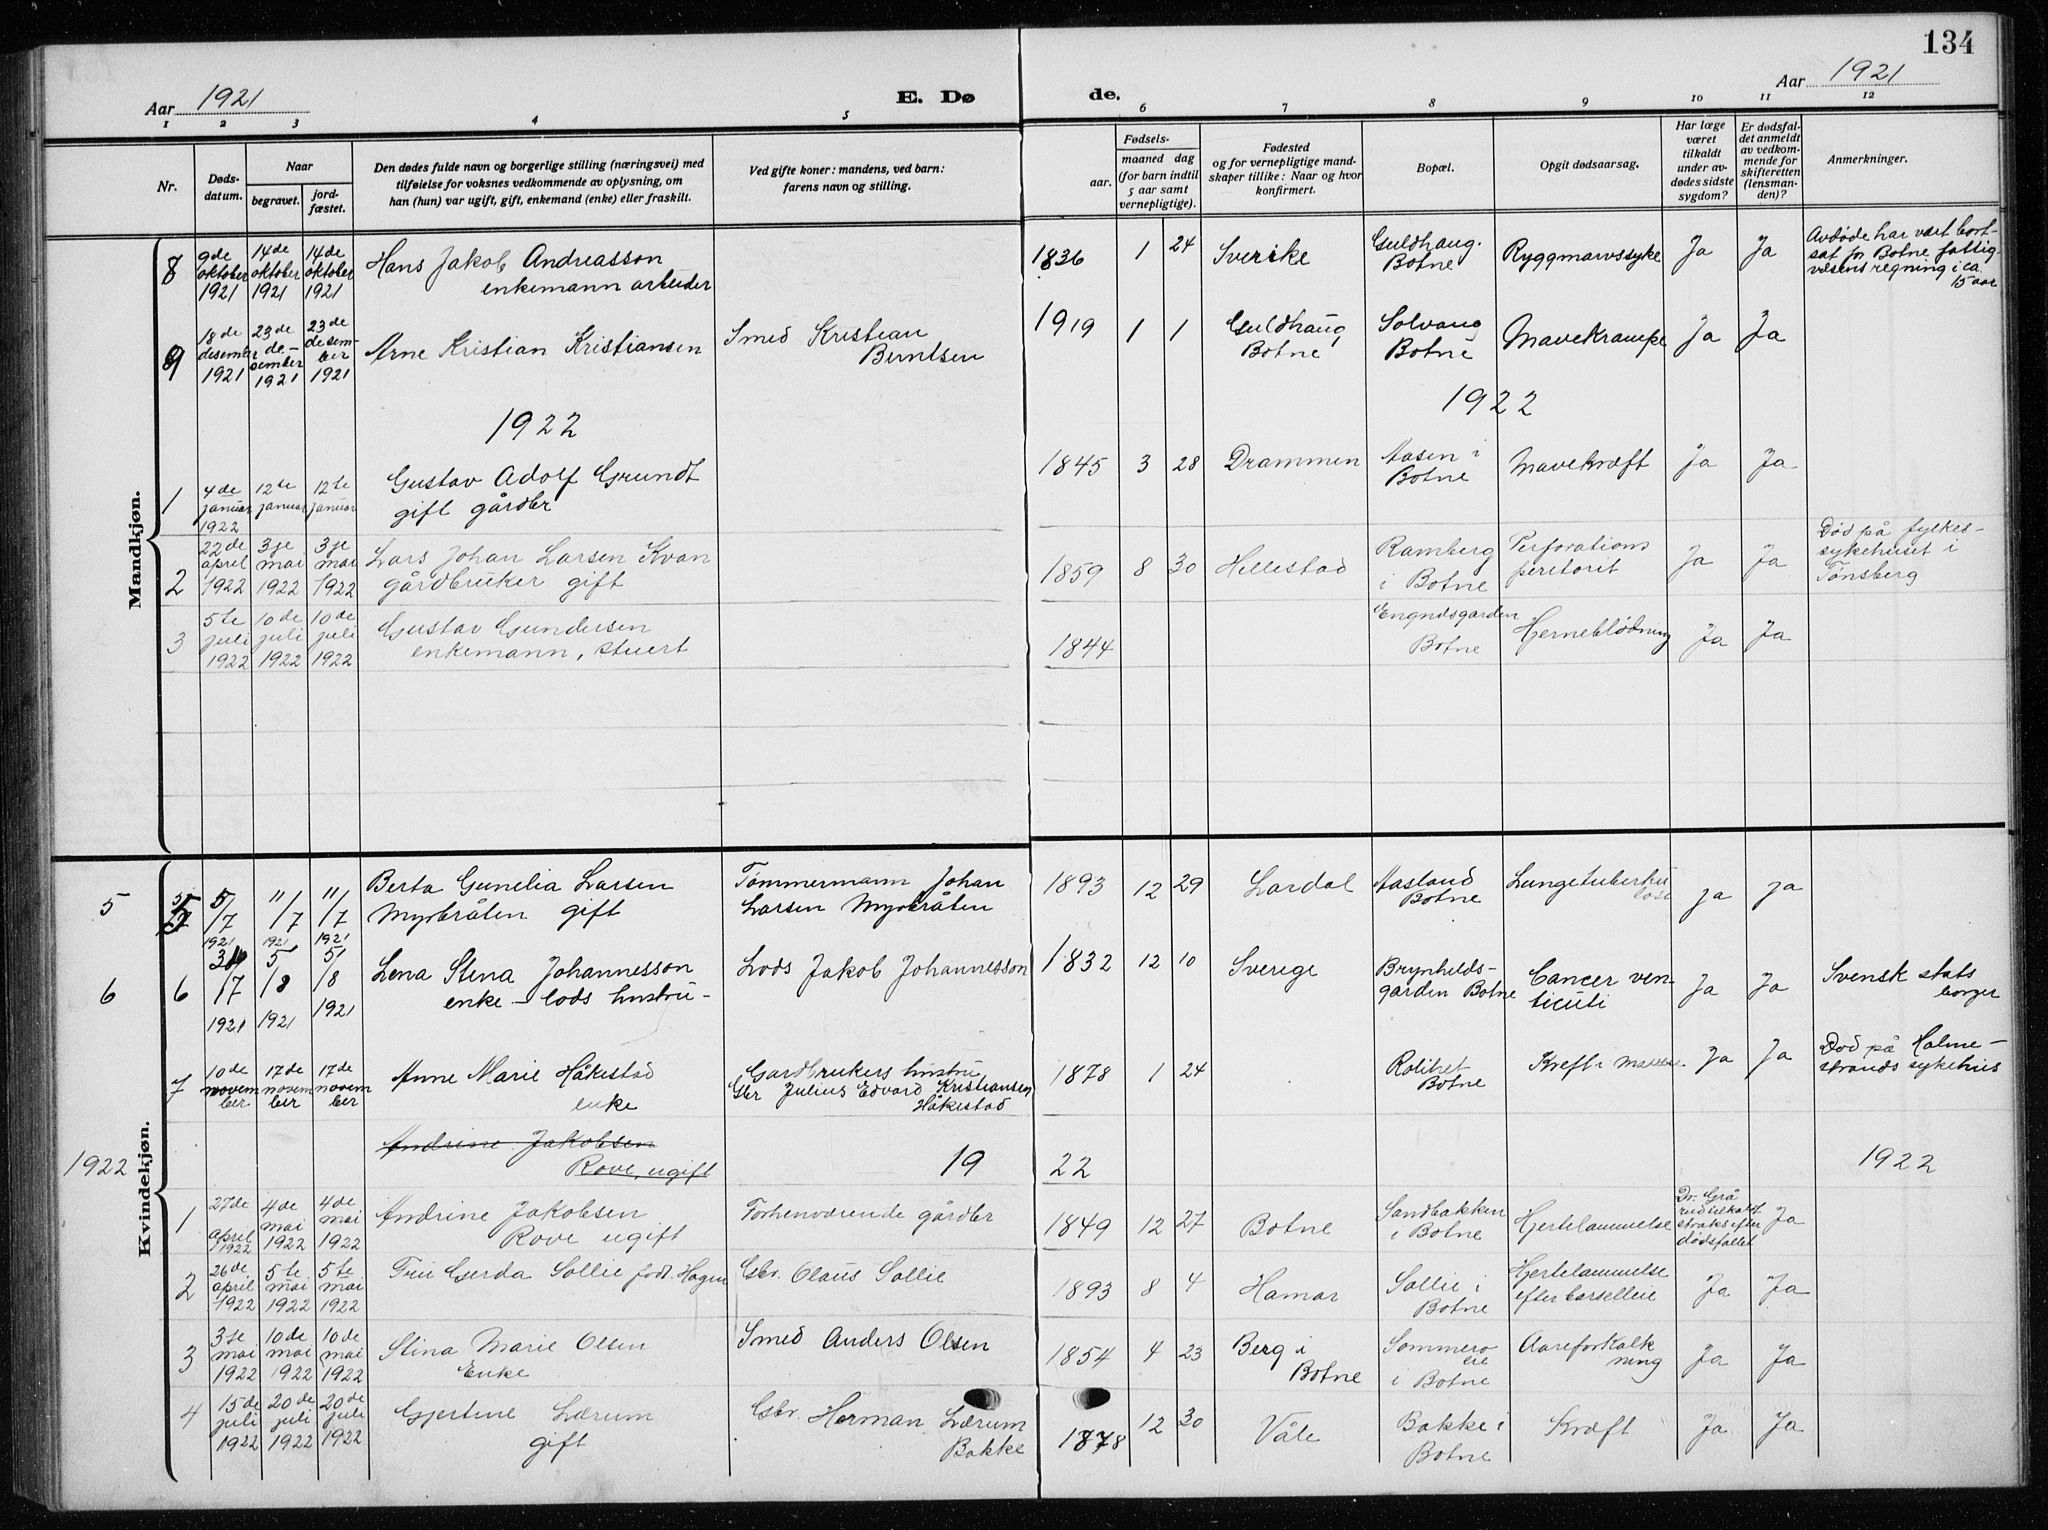 134
Aar 1921
E. Dø
de.
Aar 1921
1 2 3 4 5 6 7 8 9 10 11 12
Nr.
Døds-
datum.
Naar
begravet.
jord-
fæstet.
Den dødes fulde navn og borgerlige stilling (næringsvei) med
tilføielse for voksnes vedkommende av oplysning, om
han (hun) var ugift, gift, enkemand (enke) eller fraskilt.
Ved gifte koner: mandens, ved barn:
farens navn og stilling.
Fødsels-
aar.
maaned dag
(for barn indtil
5 aar samt
vernepligtige).
Fødested
og for vernepligtige mand-
skaper tillike: Naar og hvor
konfirmert.
Bopæl.
Opgit dødsaarsag.
Har læge
været
tilkaldt
under av-
dødes sidste
sygdom?
Er dødsfal-
det anmeldt
av vedkom-
mende for
skifteretten
(lensman-
den)?
Anmerkninger.
Mandkjøn.
8
9de
oktober
1921
14de
oktober
1921
14de
oktober
1921
Hans Jakob Andreasson
enkemann arbeider
1836 1 24
Sverike
Guldhaug.
Botne
Ryggmarvssyke
Ja
Ja
Avdøde har vært bort-
sat for Botne fattig-
vesens regning i ca.
15 aar
9
18de
desember
1921
23de
de-
sember
1921
23de
desem-
ber
1921
Arne Kristian Kristiansen
Smed Kristian
Berntsen
1919 1 1
Guldhaug
Botne
Solvang
Botne
Mavekrampe
Ja
Ja
1922
1922
1
4de
januar
1922
12te
januar
12te
januar
Gustav Adolf Grundt
gift gårdbr
1845 3 28
Drammen
Aasen i
Botne
Mavekræft
Ja
Ja
2
22de
april
1922
3je
mai
1922
3je
mai
1922
Lars Johan Larsen Kvan
gårdbruker gift
1859 8 30
Hillestad
Ramberg
i Botne
Perforations
peritonit
Ja
Ja
Død på fylkes-
sykehuset i
Tønsberg
3
5te
juli
1922
10de
juli
1922
10de
juli
1922
Gustav Gundersen
enkemann, stuert
1844
Botne
Hjerneblødning
Ja
Ja
Kvindekjøn.
5
5
5/7
1921
11/7
1921
11/7
1921
Berta Gunelia Larsen
Myrbråten gift
Tømmermann Johan
Larsen Myrbråten
1893 12 29
Lardal
Aasland
Botne
Lungetuberku
lose
Ja
Ja
6
6
31/7
1921
5/8
1921
5/8
1921
Lena Stina Johannesson
enke - lods hustru -
Lods Jakob Johannesson
1832 12 10
Sverige
Brynhelds-
garden Botne
Cancer ven-
ticuli
Ja
Ja
Svensk stats
borger
7
10de
novem
ber
17de
novem
ber
17de
novem
ber
Anne Marie Håkestad
enke
Gardbrukers hustru
Gbr Julius Edvard Kristiansen
Håkestad
1878 1 24
Rolihet
Botne
Kreft i maven
Ja
Ja
Død på Holme-
strands sykehus
Andrine Jakobsen
Rove, ugift
1922
19
22
1922
1
27de
april
1922
4de
mai
1922
4de
mai
1922
Andrine Jakobsen
Rove ugift
Forhenværende gårdbr
1849 12 27
Botne
Sandbakken
i Botne
Hjertelammelse
Dr. Grå
rud tilkaldt
straks efter
dødsfallet
Ja
2
26de
april
1922
5te
mai
1922
5te
mai
1922
Fru Gerda Sollie født Hagen
Gbr. Olaus Sollie
1893 8 4
Hamar
Sollie i
Botne
Hjertelammelse
efter barselleie
Ja
Ja
3
3je
mai
1922
10de
mai
1922
10de
mai
1922
Stina Marie Olsen
Enke
Smed Anders Olsen
1854 4 23
Berg i
Botne
i Botne
Aareforkalk
ning
Ja
Ja
4
15de
juli
1922
20de
juli
1922
20de
juli
1922
Gjertine Lærum
gift
Gbr. Herman Lærum
Bakke
1878 12 30
Våle
Bakke i
Botne
Kræft
Ja
Ja